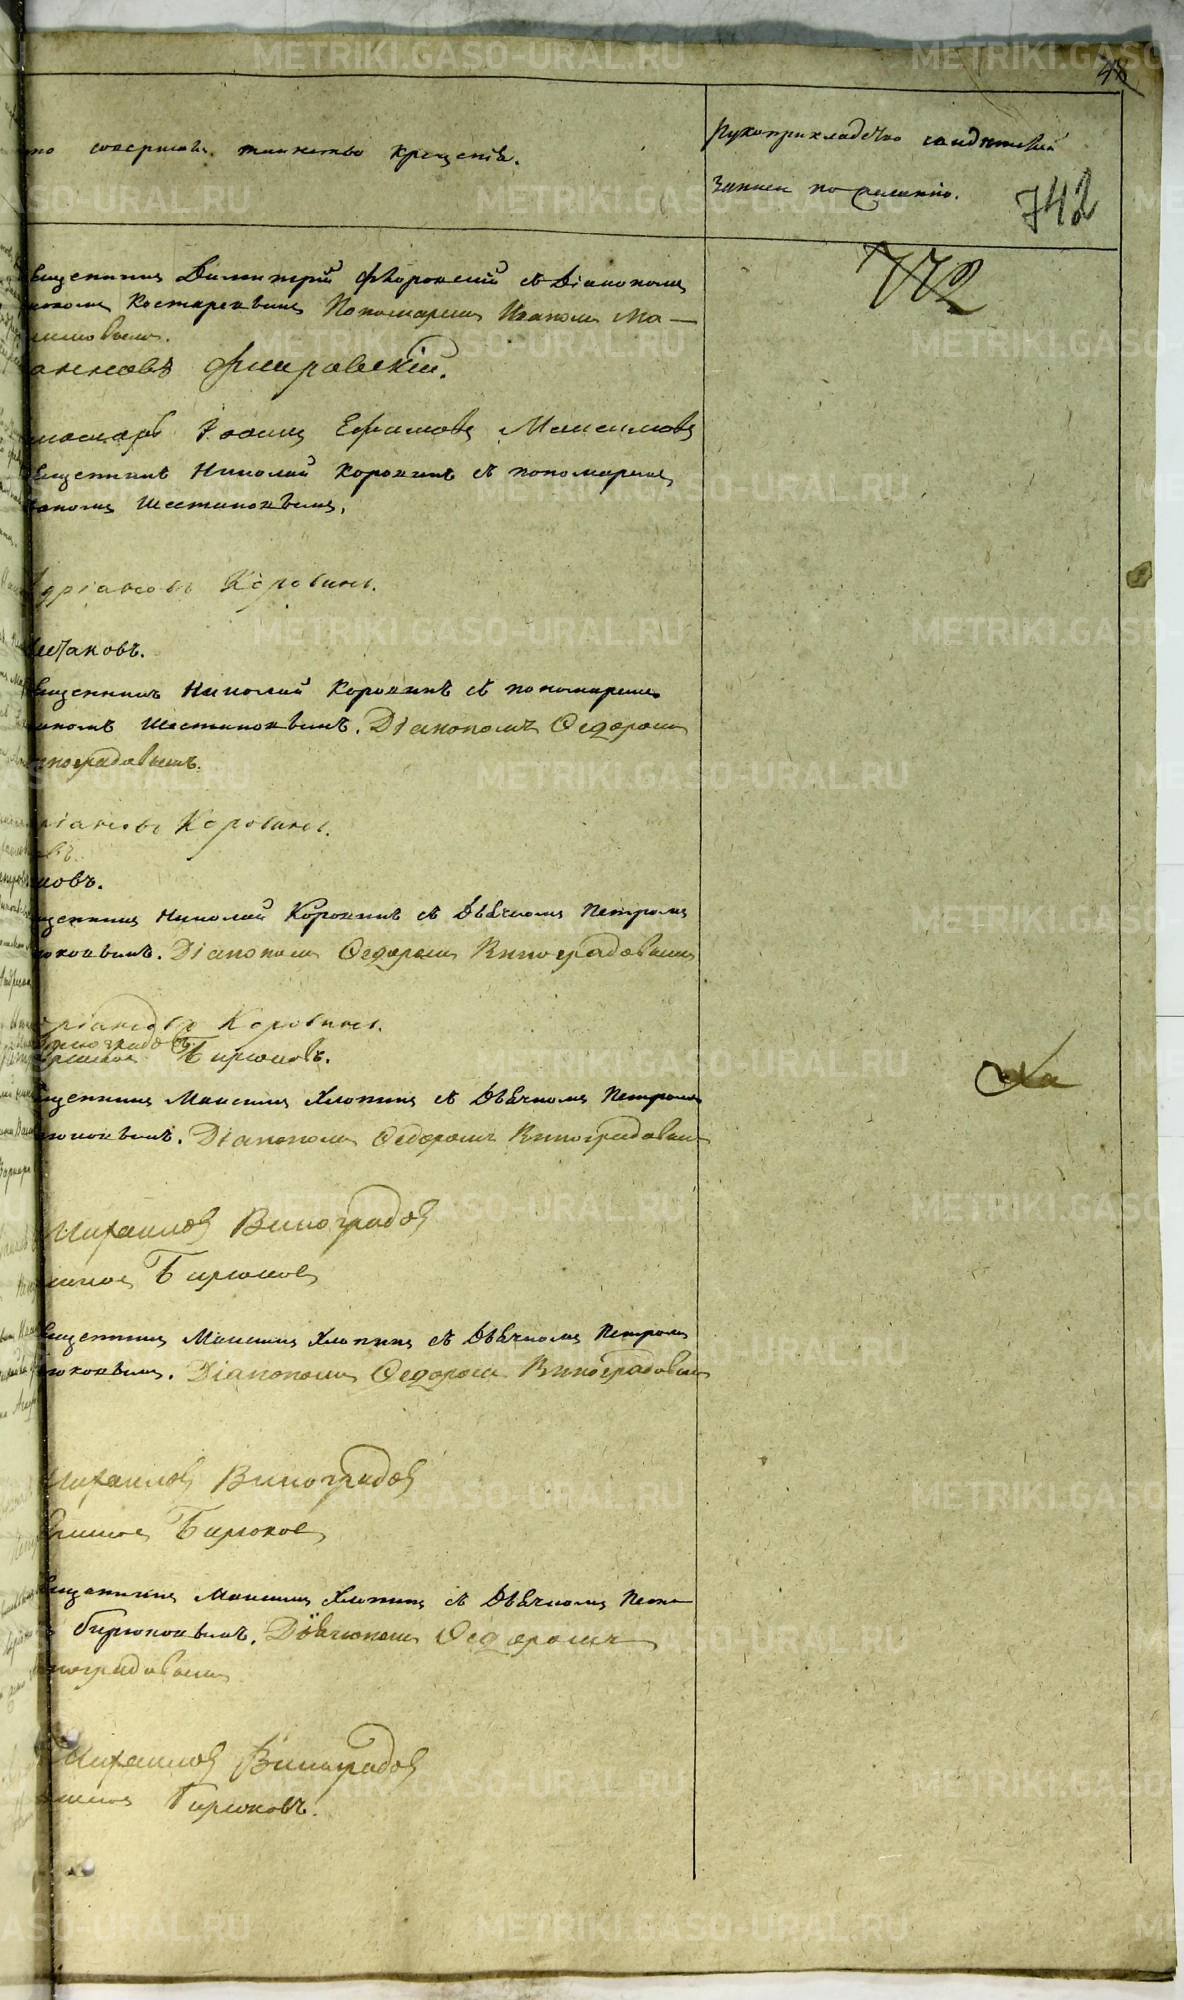 48
то совершалъ таинство крещенія.
Рукоприкладство свидѣтелей
записи по желанію.
742
772
вященникъ Димитрій Флоровскій съ Діакономъ
Костаревымъ Пономаремъ Иваномъ Ма-
симовымъ.
анновъ Флоровскій.
Іоаннъ Ефимовъ Максимовъ
вященникъ Николай Коровинъ съ пономаремъ
Шестаковымъ.
дріановъ Коровинъ.
Шестаковъ.
вященникъ Николай Коровинъ съ пономаремъ
Шестаковымъ. Діакономъ Ѳедоромъ
иноградовымъ.
ріановъ Коровинъ.
въ.
ковъ.
щенникъ Николай Коровинъ съ Дьячкомъ Петромъ
юковымъ. Діакономъ Ѳедоромъ Виноградовымъ
ріановъ Коровинъ.
Виноградовъ
Бирюковъ.
щенникъ Максимъ Хлопинъ съ Дьячкомъ Петромъ
юковымъ. Діакономъ Ѳедоромъ Виноградовым
Михаиловъ Виноградовъ
Бирюковъ
вященникъ Максимъ Хлопинъ съ Дьячкомъ Петромъ
юковымъ. Діакономъ Ѳедоромъ Виноградовым
Михаиловъ Виноградовъ
Бирюковъ
вященникъ Максимъ Хлопинъ съ Дьячкомъ Пет-
ъ Бирюковымъ. Діакономъ Ѳедоромъ
ноградовымъ
Михаиловъ Виноградовъ
Бирюковъ.
METRIKI.GASO-URAL.RU